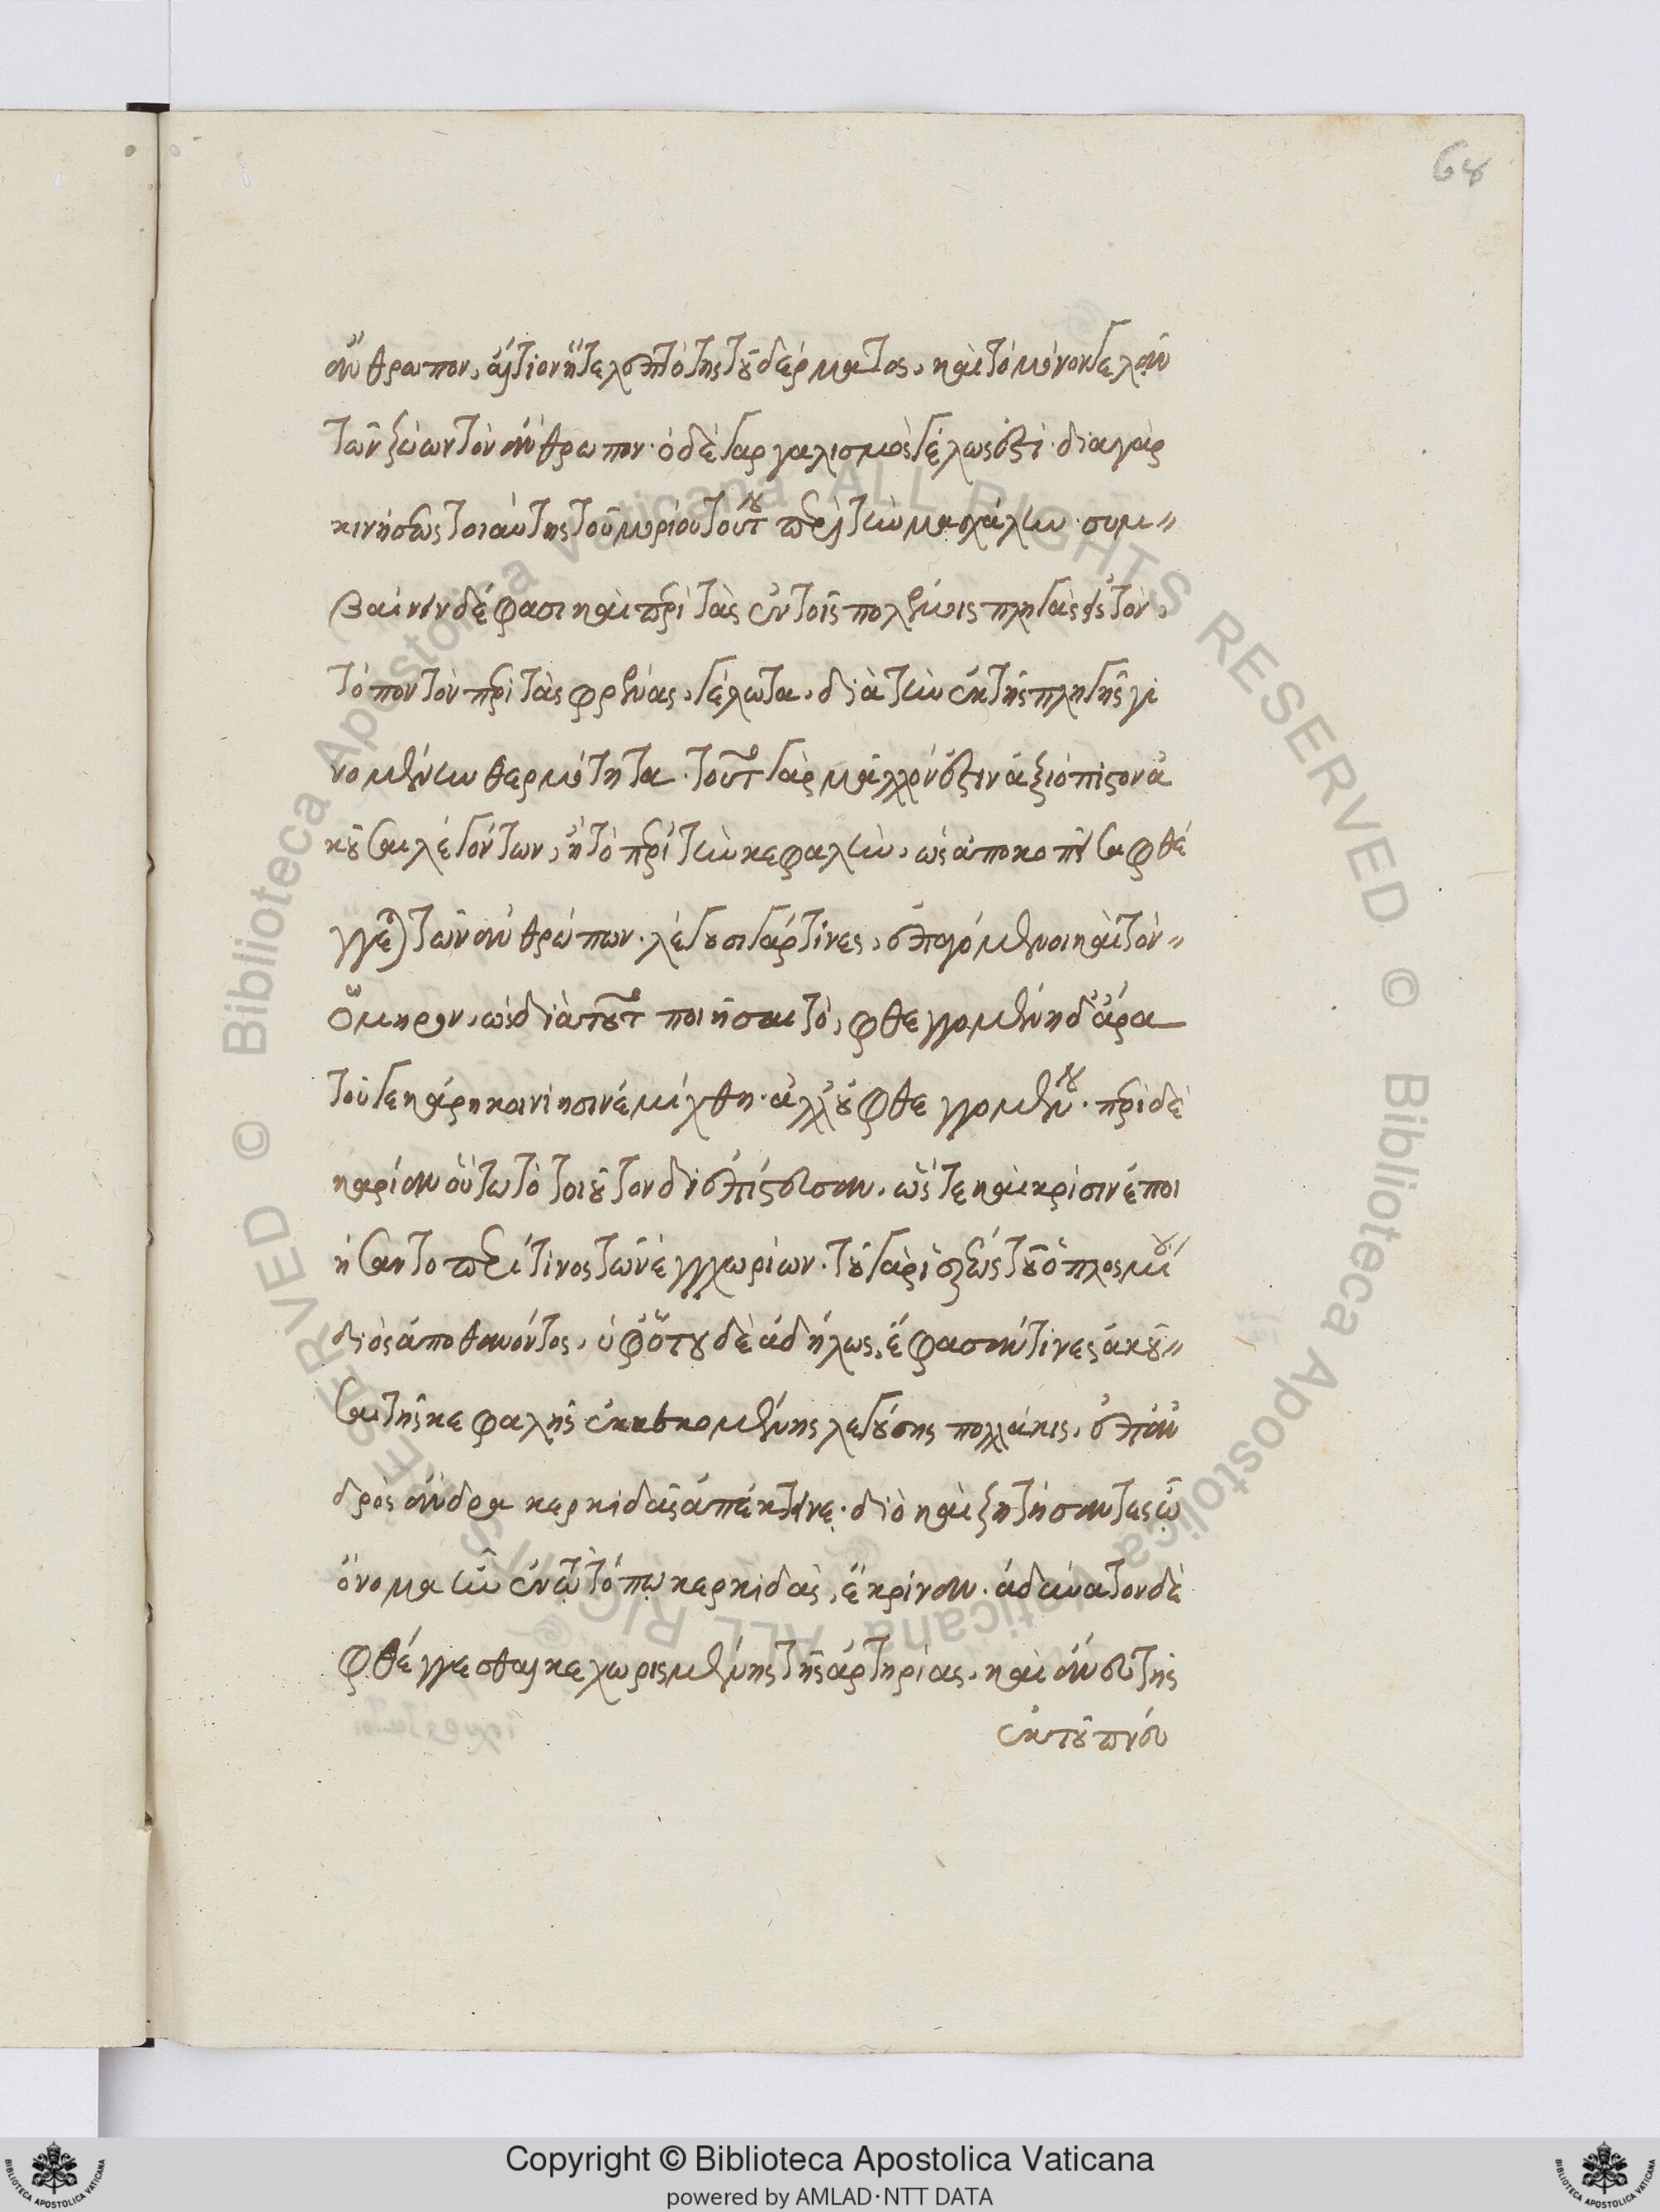 64
ἄνθρωπον, αἴτιον ἥτε λεπτότης τοῦ δέρματος, καὶ τὸ μόνον γελᾶν
τῶν ζώων τὸν ἄνθρωπον· ὁ δὲ γαργαλισμὸς γέλως ἐστὶ· διὰ γὰρ
κινήσεως τοιαύτης τοῦ μορίου τούτου περὶ τὴν μασχάλην· συμ〃
βαίνειν δέ φασι καὶ περὶ τὰς ἐν τοῖς πολέμοις πληγὰς εἰς τὸν,
τόπον τὸν περὶ τὰς φρένας, γέλωτα, διὰ τὴν ἐκ τῆς πληγῆς γι
νομένην θερμότητα. τοῦτο γὰρ μᾶλλον ἐστιν ἀξιόπιστον ἀ
κοῦσαι λεγόντων, ἢ τὸ περὶ τὴν κεφαλὴν, ὡς ἀποκοπεῖσα φθέ
γγεται τῶν ἀνθρώπων. λέγουσι γάρ τινες, ἐπαγόμενοι καὶ τὸν〃
Ὅμηρον, ὡς διὰ τοῦτο ποιήσαντο, φθεγγομένη δ' ἄρα
τοῦγε κάρη κονίησιν ἐμίχθη· ἀλλ' οὐ φθεγγομένου· περὶ δὲ
καρίαν οὕτω τὸ τοιοῦτον διεπίστευσαν, ὥστε καὶ κρίσιν ἐποι
ήσαντο περί τινος τῶν ἐγχωρίων. τοῦ γὰρ ἱερέως τοῦ ὁπλοσμίου
διὸς ἀποθανόντος, ὑφ' ὅτου δὲ ἀδήλως, ἔφασάν τινες ἀκοῦ〃
σαι τῆς κεφαλῆς ἐκκεκομμένης λεγούσης πολλάκις, ἐπ' ἀν
δρὸς ἄνδρα κερκιδᾶς ἀπέκτεινε· διὸ καὶ ζητήσαντες ᾧ
ὄνομα ἦν ἐν τῷ τόπῳ κερκιδὰς, ἔκριναν. ἀδύνατον δὲ
φθέγγεσθαι κεχωρισμένης τῆς ἀρτηρίας, καὶ ἄνευ τῆς
ἐκ τοῦ πνεύ
Copyright © Biblioteca Apostolica Vaticana
powered by AMLAD·NTT DATA